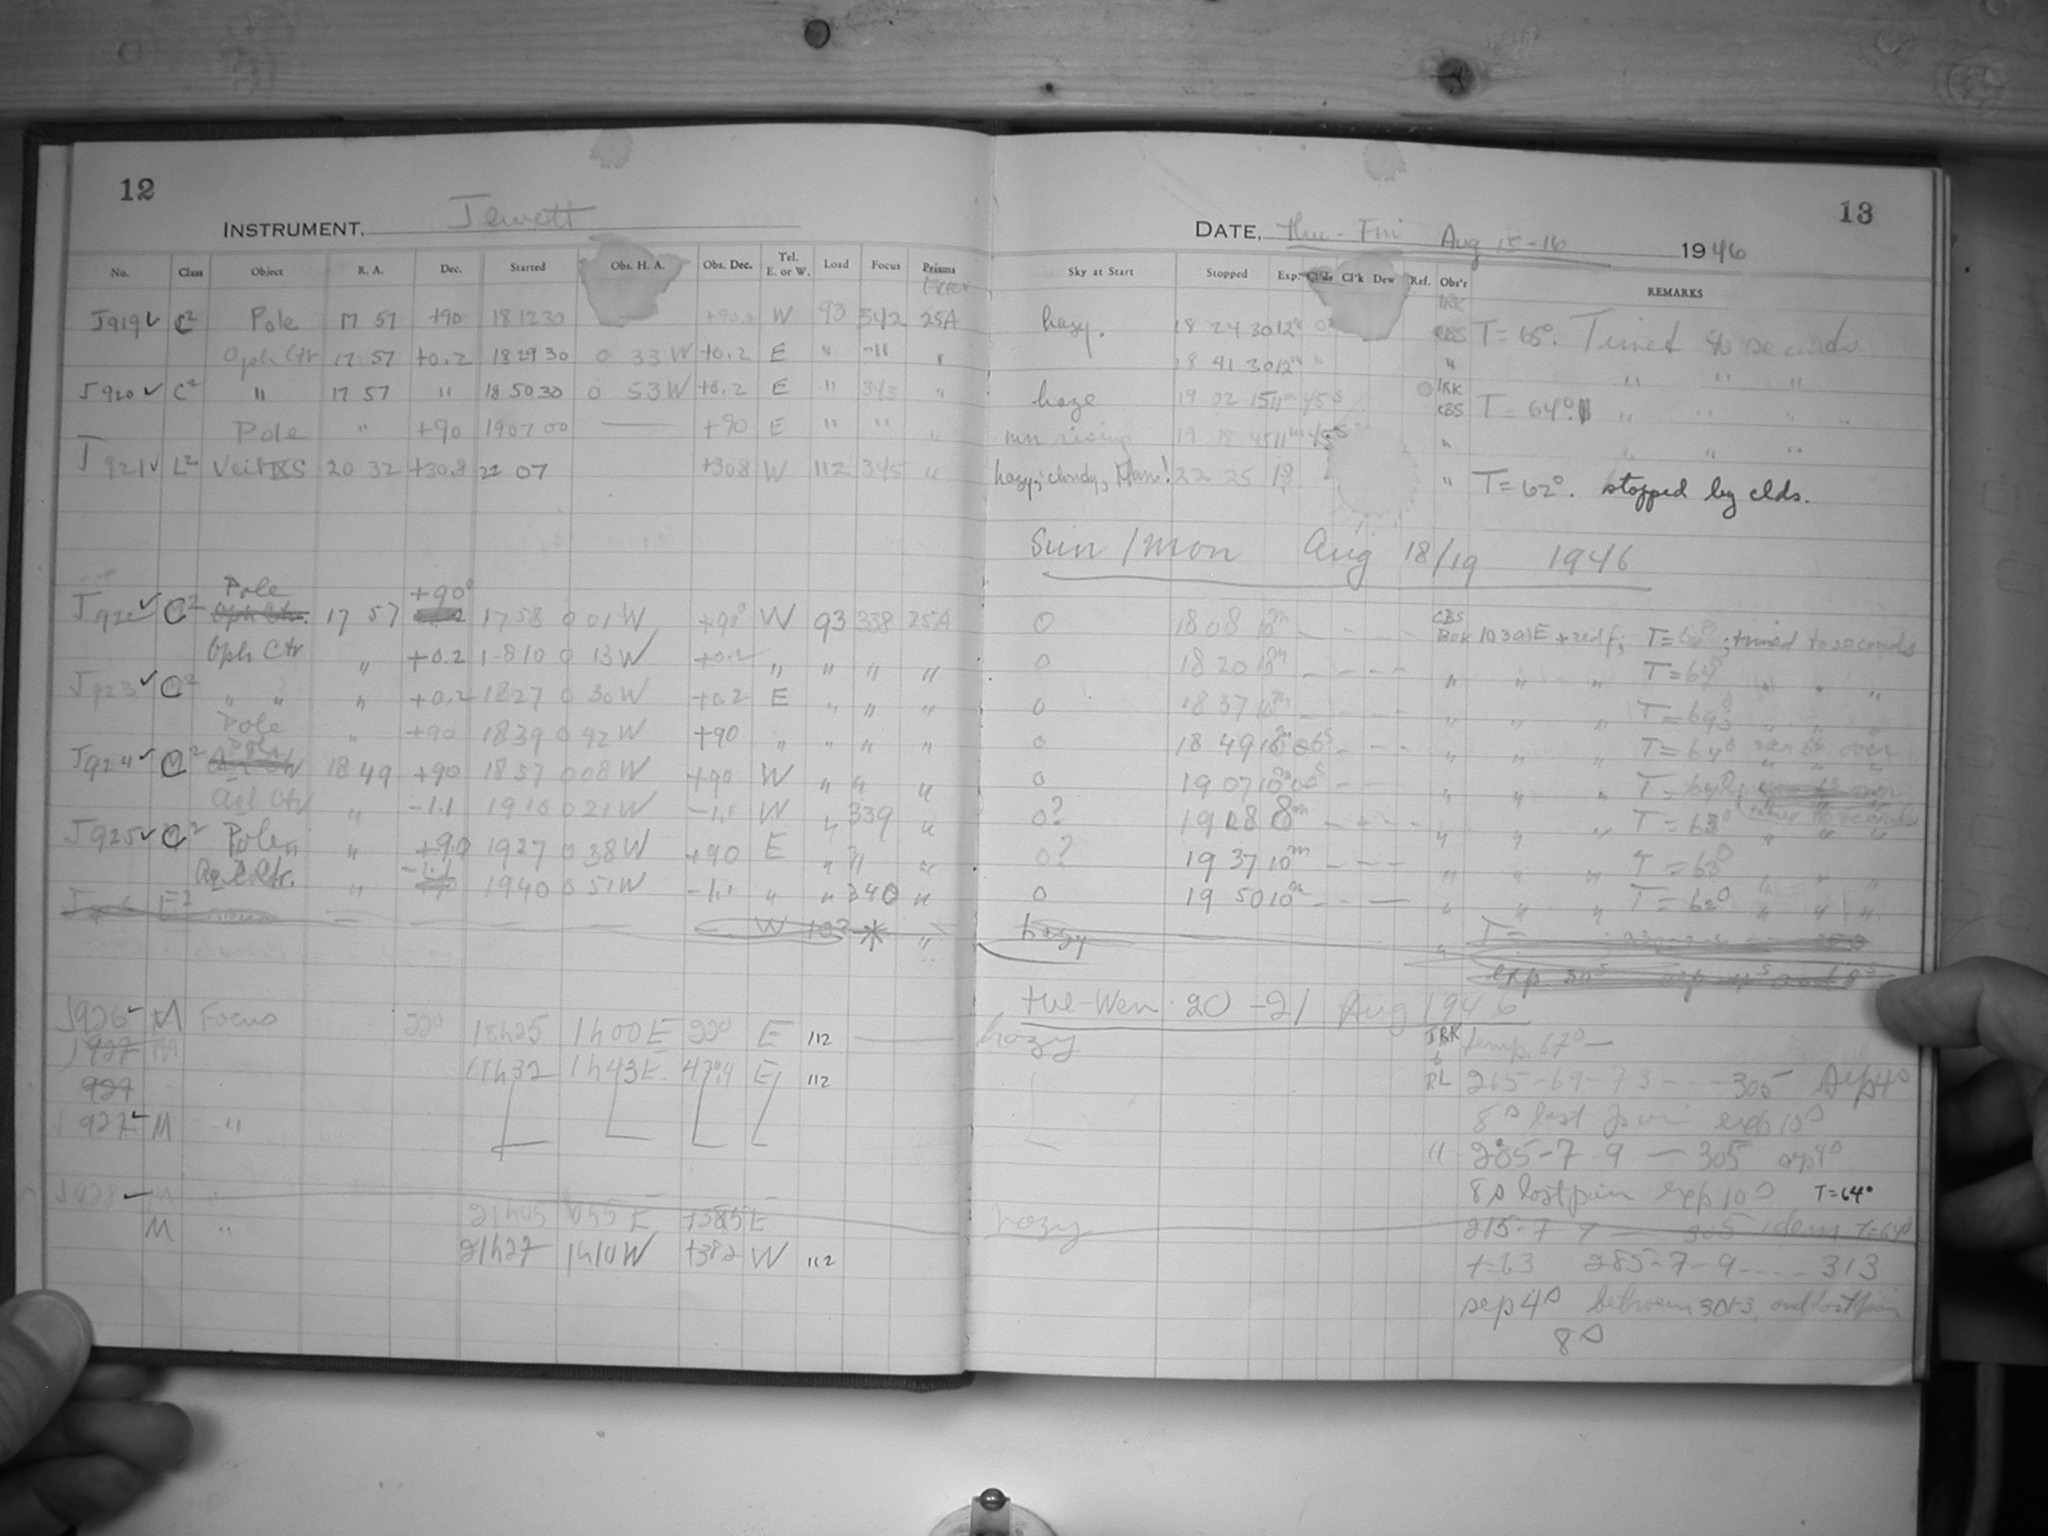 12
INSTRUMENT, Jewett
No. Class Object R. A. Dec. Started Obs. H. A. Obs. Dec. Tel. E. or W. Load Focus Prisms
J919✓ C² Pole 17 57 +90 18 12 30 W 93 342 25A
Oph Ctr 17 57 +0.2 18 29 30 0 33 W +0.2 E " "
J920✓ C² " 17 57 " 18 50 30 0 53 W +0.2 E " 343 "
Pole " +90 19 07 00 — +90 E " " "
J921✓ L² 20 32 +30.8 22 07 +308 W 112 345 "
Pole +90°
J922✓ C² Oph Ctr. 17 57 1758 0 01 W +90° W 93 338 25A
Oph Ctr " +0.2 1810 0 13 W +0.2 " " " "
J923✓ C² " " " +0.2 1827 0 30 W +0.2 E " " "
Pole " +90 1839 0 42 W +90 " " " "
J924✓ C² Pole 18 49 +90 1857 0 08 W +90 W " " "
Aql Ctr " -1.1 1910 0 21 W -1.1 W " 339 "
J925✓ C² Pole " +90 1927 0 38 W +90 E " " "
Aql Ctr. " -1.1 1940 0 51 W -1.1 " " 340 "
W 103 * "
J926✓ M Focus 22° 18h25 1h00 E 22° E 112
J927 M 18h32 1h43 E 43°4 E 112
927
J927✓ M "
J928✓ M " 21h05 055 E +385 E
M " 21h27 1h10 W +382 W 112
13
DATE, Thu - Fri Aug 15-16 1946
Sky at Start Stopped Exp. Cl'ds Cl'k Dew Ref. Obs'r REMARKS
IRK
hazy. 18 24 30 12m CBS T = 65°. Timed 90 seconds
18 41 30 12m " " " " "
haze 19 02 15 11m 45s IRK CBS T = 64° " " "
mn rising 19 18 45 11m 45s " " " "
hazy; cloudy, 22 25 18 " T = 62°. stopped by clds.
Sun / Mon Aug 18/19 1946
0 1808 10m — - - - CBS
BOK 103aE + red f; T = ; timed 10 seconds
0 1820 10m - - - - " " " T = 64° " " "
0 1837 10m - - - - " " " T = " " "
0 18 49 10m 06s - - - " " " T = 64° over
0 19 07 10m - - " " " T = 64°
0? 1918 8m - - - - " " " T = 63° " " "
0? 19 37 10m - - - " " " T = 63° " " "
0 19 50 10m - - — " " " T = 62° " " "
hazy " T =
exp. 30s
Tue-Wen 20-21 Aug 1946
hazy IRK temp. 67° —
RL 265-69-73 - - 305 sep 4s
8s last pair exp 10s
" 285-7-9 — 305 sep 4s
8s last pair exp 10s T=64°
hazy 215-7 — 305 idem T=64°
t=63 285-7-9 ---- 313
sep 4s between 301-3, and last pair
8s